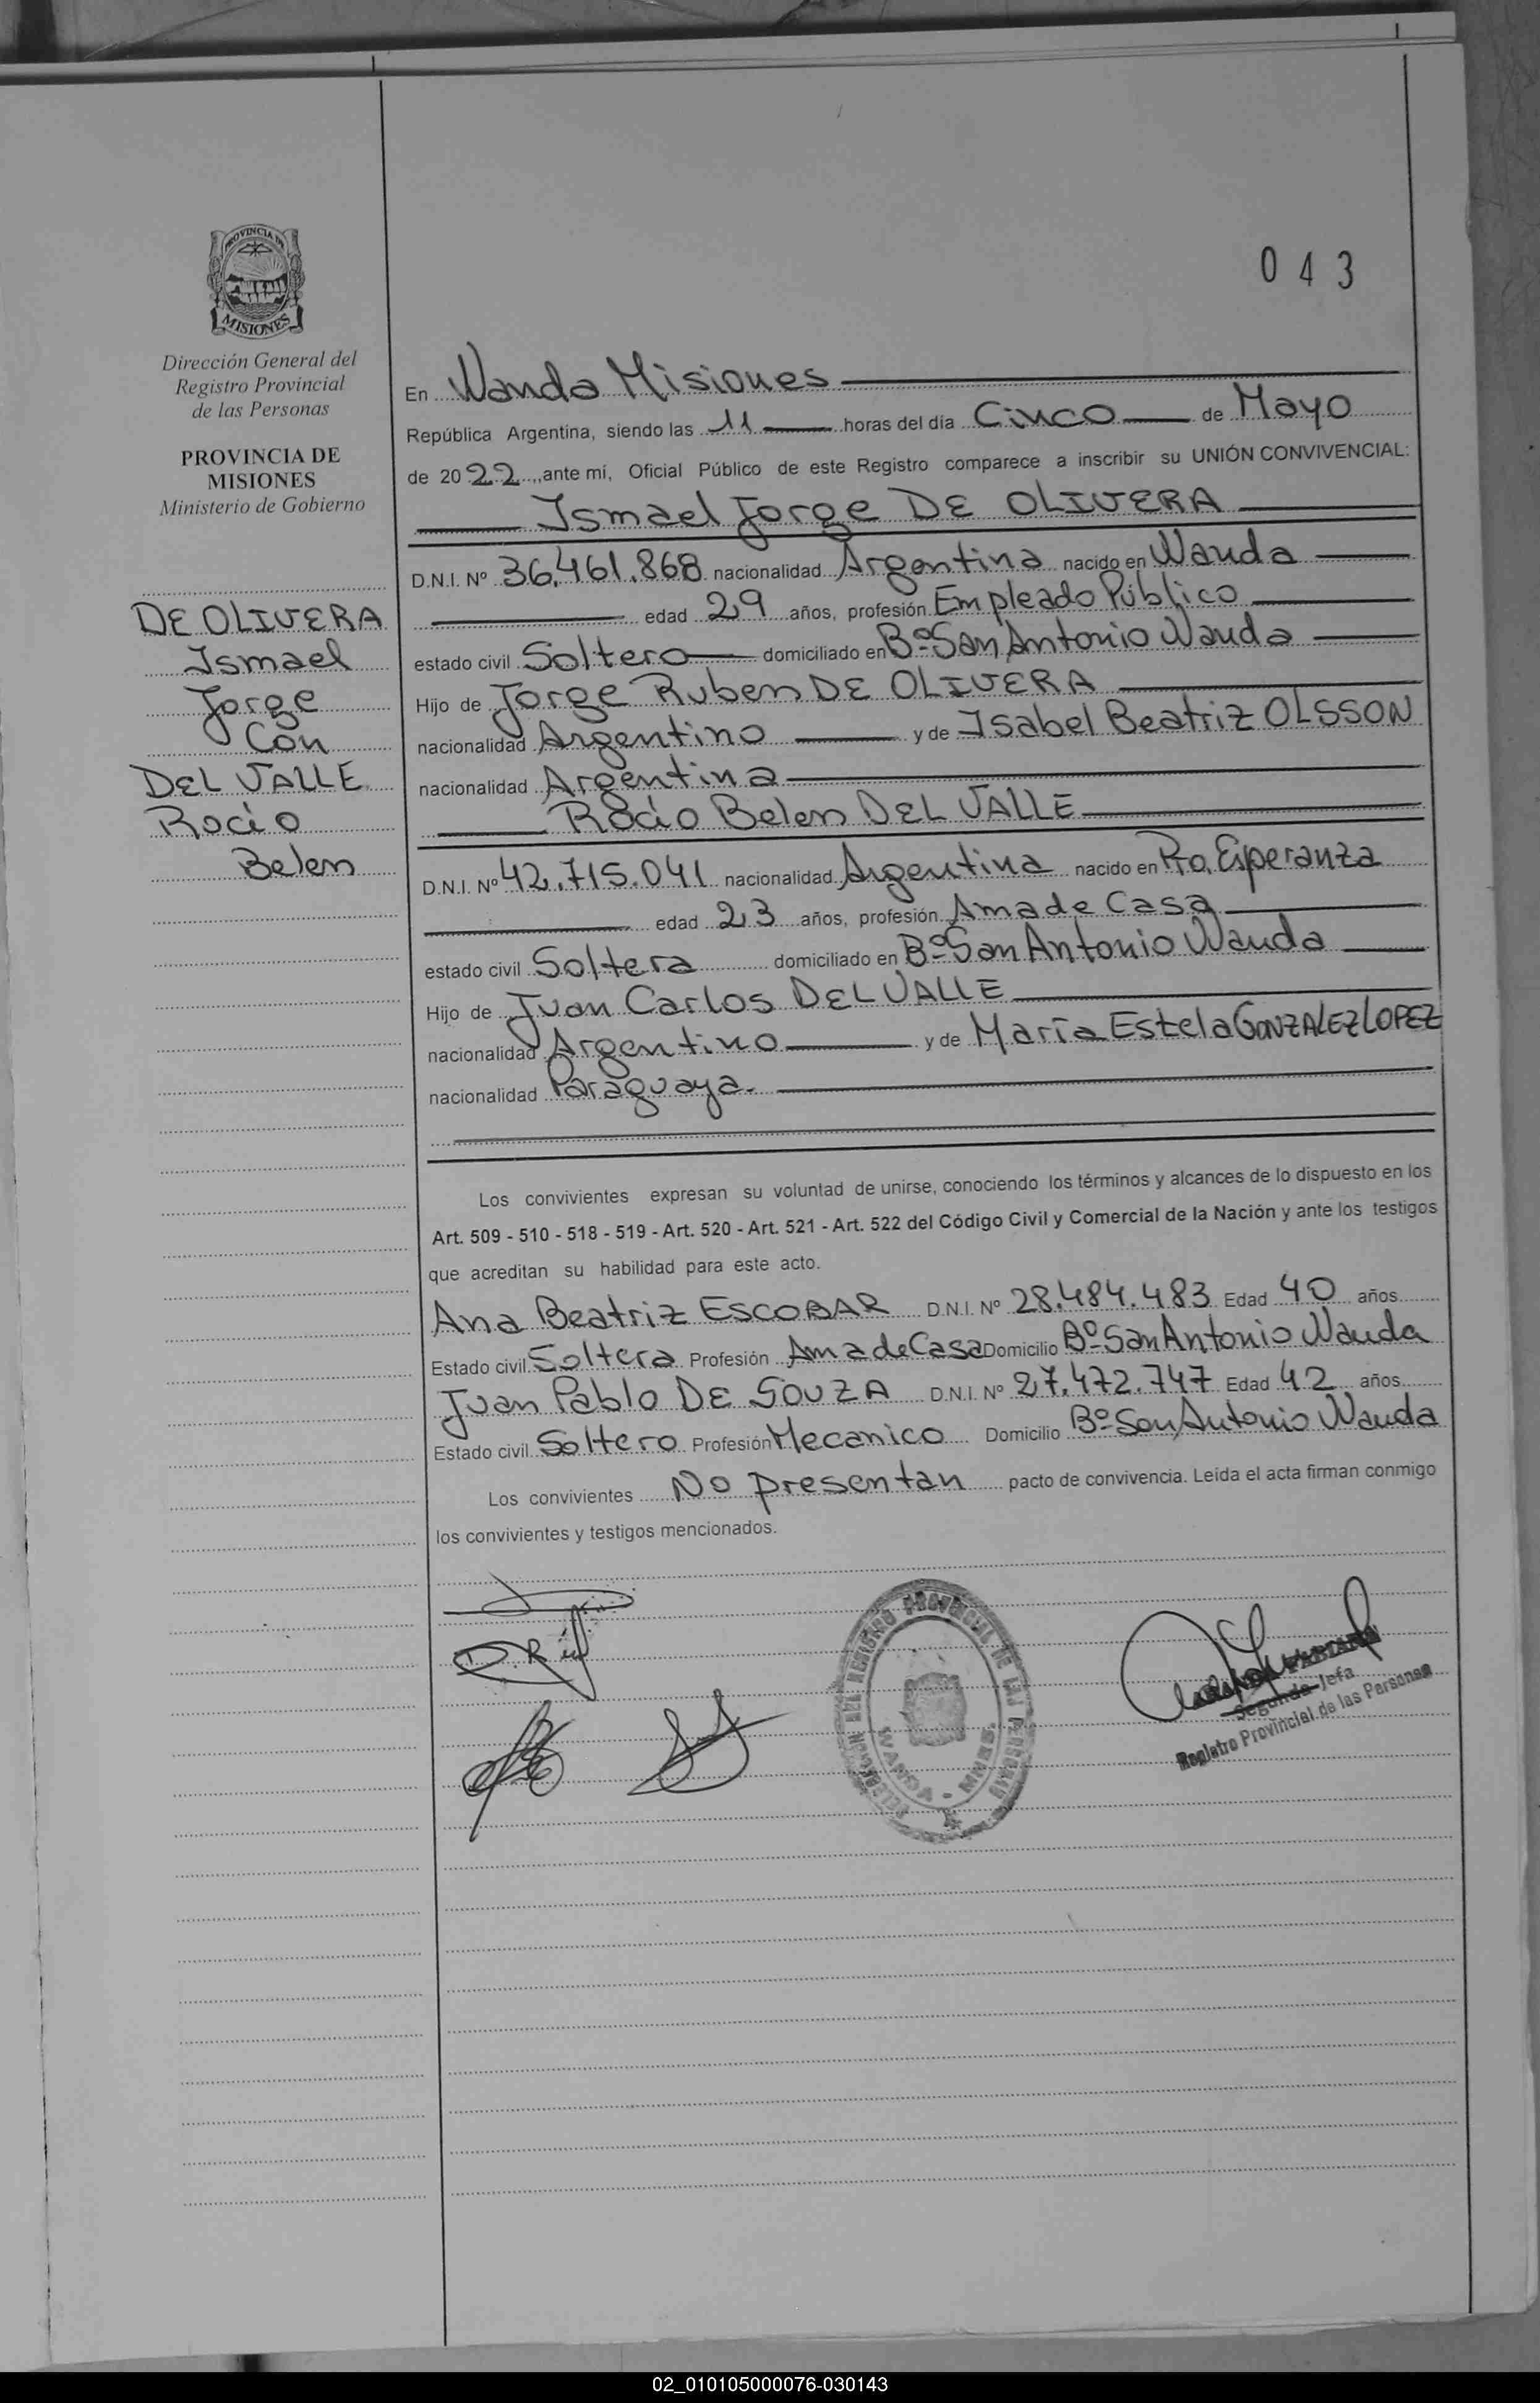 043
PROVINCIA DE
MISIONES
Dirección General del
Registro Provincial
de las Personas
PROVINCIA DE
MISIONES
Ministerio de Gobierno
DE OLIVERA
Ismael
Jorge
Con
DEL VALLE
Rocio
Belen
En Wanda Misiones
República Argentina, siendo las 11 horas del día Cinco de Mayo
de 2022, ante mí, Oficial Público de este Registro comparece a inscribir su UNIÓN CONVIVENCIAL:
Ismael Jorge DE OLIVERA
D.N.I. Nº 36.461.868 nacionalidad Argentina nacido en Wanda
edad 29 años, profesión Empleado Público
estado civil Soltero domiciliado en Bº San Antonio Wanda
Hijo de Jorge Ruben DE OLIVERA
nacionalidad Argentino y de Isabel Beatriz OLSSON
nacionalidad Argentina
Rocio Belen DEL VALLE
D.N.I. Nº 42.715.041 nacionalidad Argentina nacido en Pto. Esperanza
edad 23 años, profesión Ama de Casa
estado civil Soltera domiciliado en Bº San Antonio Wanda
Hijo de Juan Carlos DEL VALLE
nacionalidad Argentino y de María Estela GONZALEZ LOPEZ
nacionalidad Paraguaya.
Los convivientes expresan su voluntad de unirse, conociendo los términos y alcances de lo dispuesto en los
Art. 509 - 510 - 518 - 519 - Art. 520 - Art. 521 - Art. 522 del Código Civil y Comercial de la Nación y ante los testigos
que acreditan su habilidad para este acto.
Ana Beatriz ESCOBAR D.N.I. Nº 28.484.483 Edad 40 años
Estado civil Soltera Profesión Ama de Casa Domicilio Bº San Antonio Wanda
Juan Pablo DE SOUZA D.N.I. Nº 27.472.747 Edad 42 años
Estado civil Soltero Profesión Mecanico Domicilio Bº San Antonio Wanda
Los convivientes No presentan pacto de convivencia. Leída el acta firman conmigo
los convivientes y testigos mencionados.
DELEGACION DEL REGISTRO PROVINCIAL DE LAS PERSONAS
WANDA - MNES.
Segunda Jefa
Registro Provincial de las Personas
02_010105000076-030143